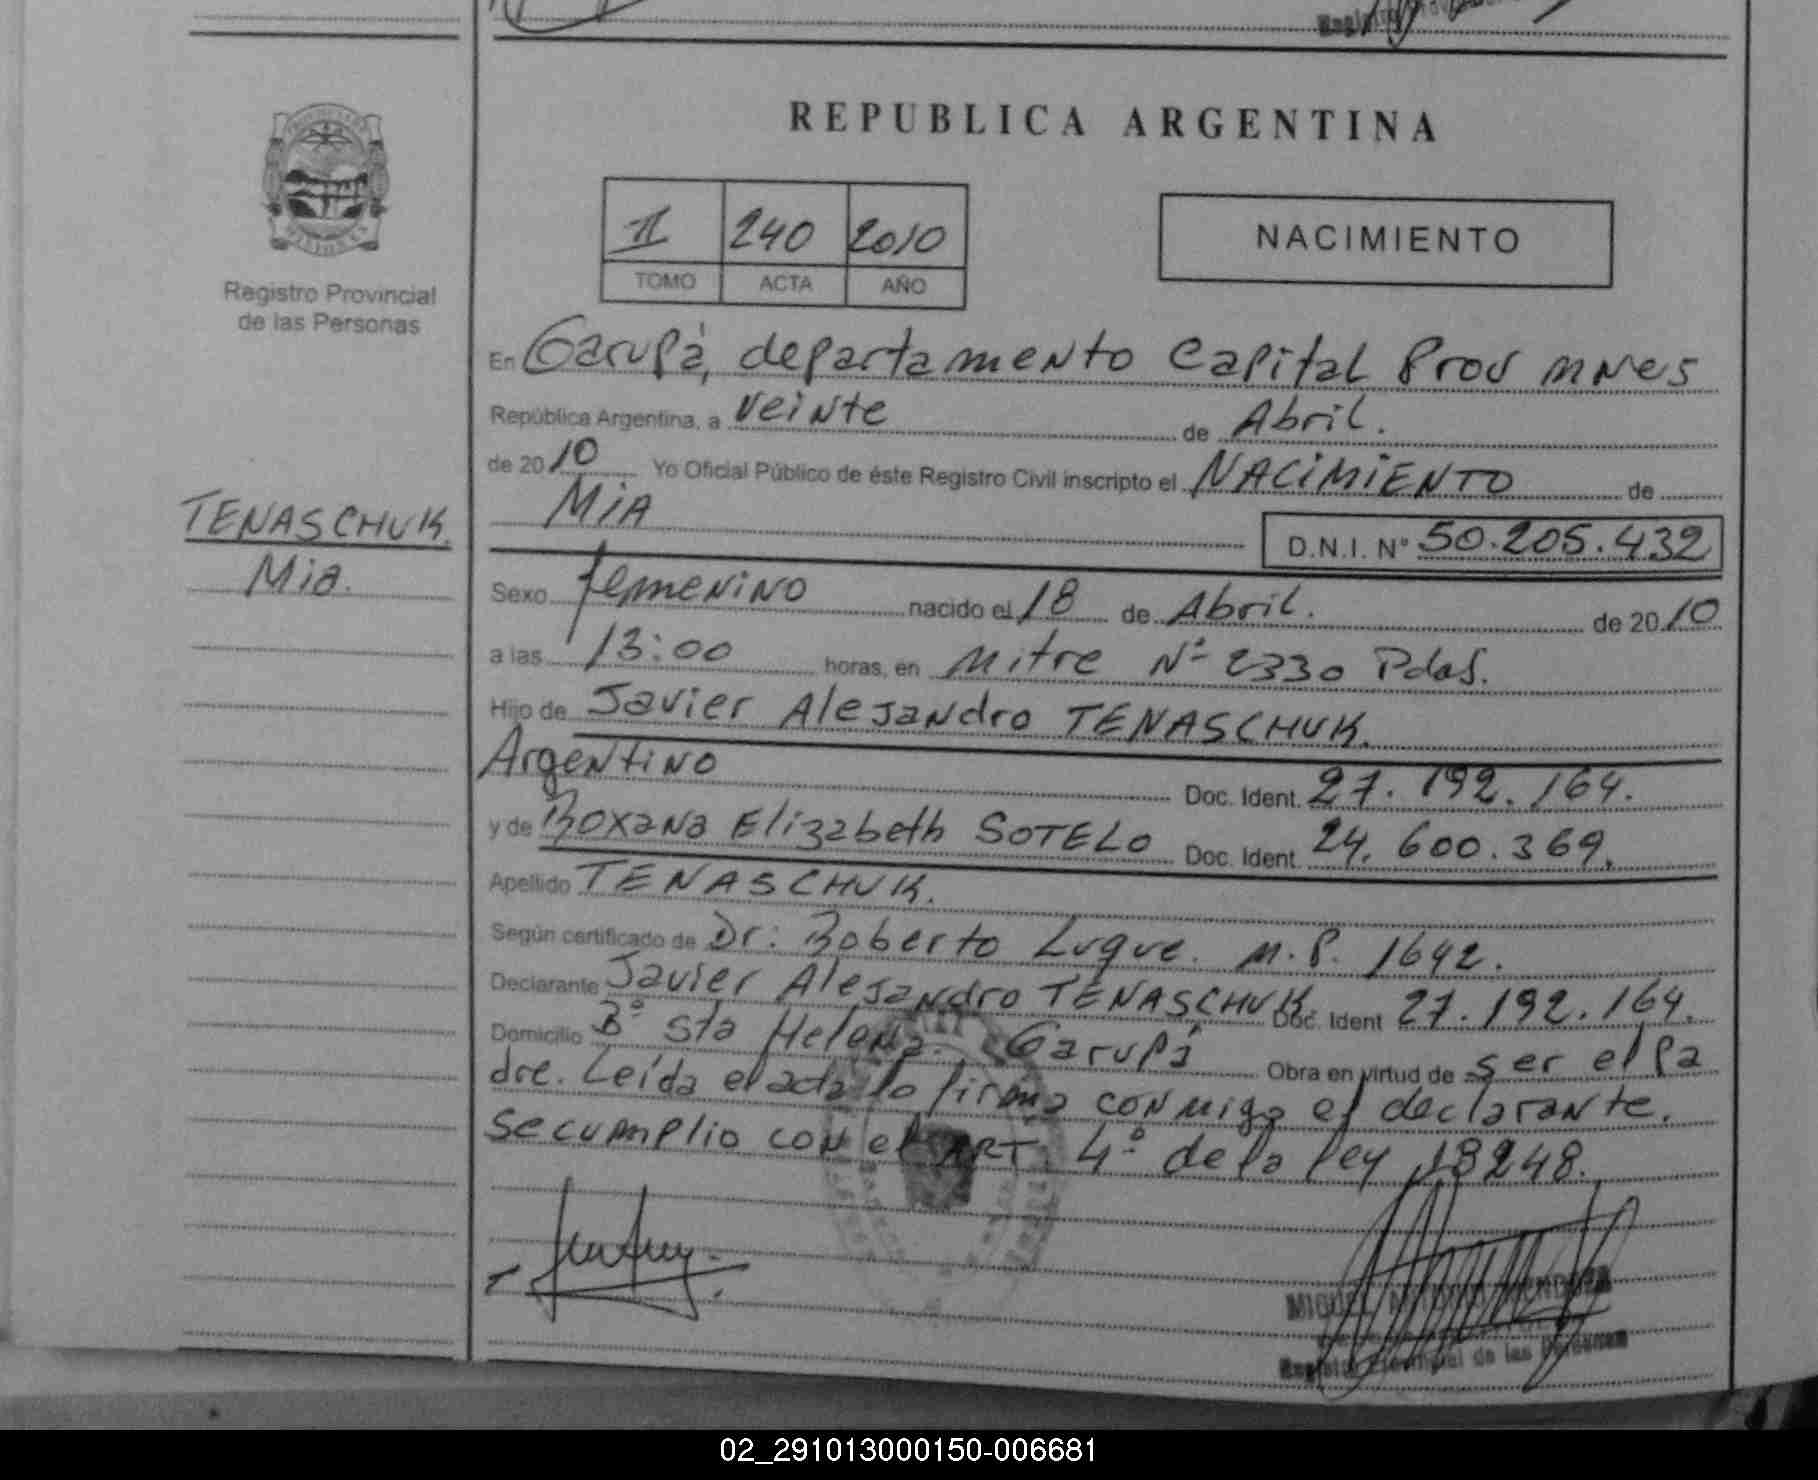 REPUBLICA ARGENTINA
II 240 2010
TOMO ACTA AÑO
NACIMIENTO
Registro Provincial
de las Personas
TENASCHUK.
Mia.
En Garupá, departamento Capital Prov mnes
República Argentina, a veinte de Abril.
de 2010 Yo Oficial Público de éste Registro Civil inscripto el NACIMIENTO de
MIA D.N.I. Nº 50.205.432
Sexo femenino nacido el 18 de Abril. de 2010
a las 13:00 horas, en Mitre Nº 2330 Pdas.
Hijo de Javier Alejandro TENASCHUK.
Argentino Doc. Ident. 27.192.164.
y de Roxana Elizabeth SOTELO Doc. Ident. 24.600.369.
Apellido TENASCHUK.
Según certificado de Dr: Roberto Luque. M.P. 1642.
Declarante Javier Alejandro TENASCHUK. Doc. Ident 27.192.164.
Domicilio Bº Sta Helena. Garupá Obra en virtud de ser el pa
dre. Leída el acta lo firma conmigo el declarante.
se cumplio con el ART. 4º de la ley 18248.
MIGUEL
Registro Provincial de las Personas
02_291013000150-006681